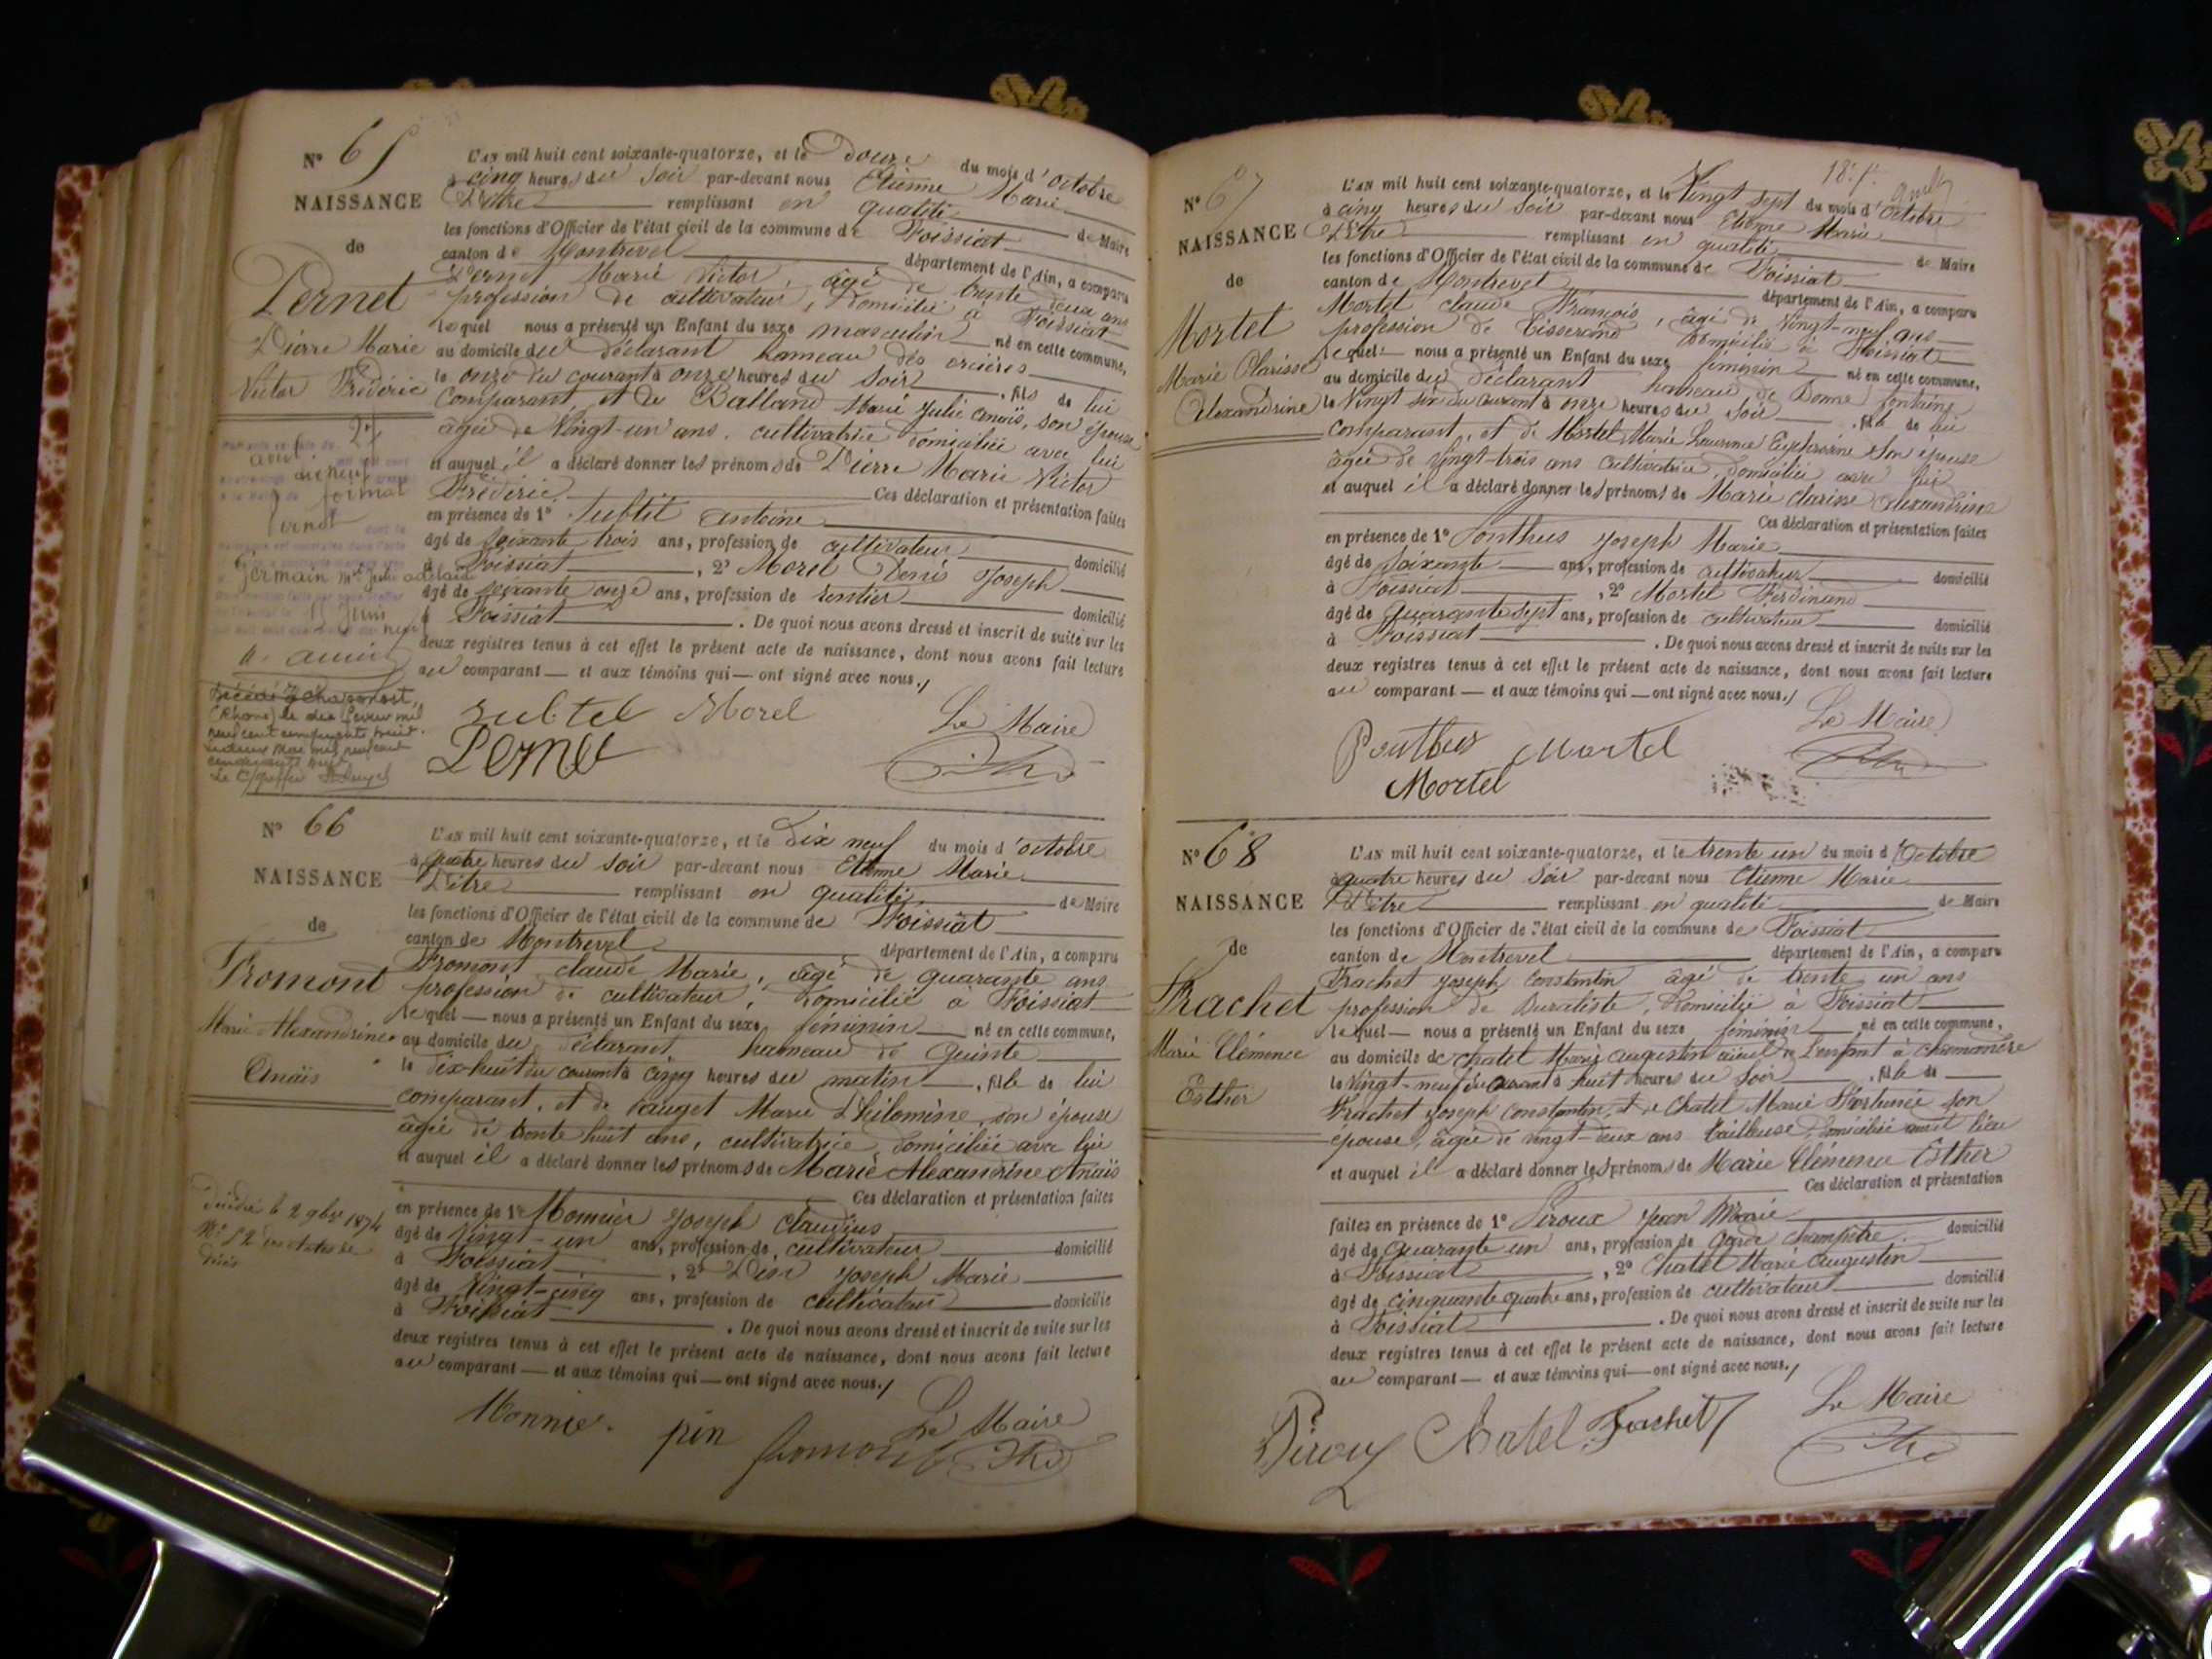 N° 65
NAISSANCE
de
Pernet
Pierre Marie
Victor Frédéric
L'AN mil huit cent soixante-quatorze, et le Douze du mois d'octobre
à cinq heures du soir par-devant nous Etienne Marie
Pitre remplissant en qualité de Maire
les fonctions d'Officier de l'état civil de la commune de Foissiat
canton de Montrevel département de l'Ain, a comparu
Pernet Marie Victor, âgé de trente deux ans
profession de cultivateur, domicilié à Foissiat
lequel nous a présenté un Enfant du sexe masculin né en cette commune,
au domicile du déclarant hameau des
le onze du courant à onze heures du soir, fils de lui
comparant et de Balland Marie Julie Anaïs, son épouse
âgée de vingt-un ans, cultivatrice domiciliée avec lui
et auquel il a déclaré donner les prénoms de Pierre Marie Victor
Frédéric Ces déclaration et présentation faites
en présence de 1° Subtil Antoine
âgé de soixante trois ans, profession de cultivateur domicilié
à Foissiat, 2° Morel Denis Joseph
âgé de soixante onze ans, profession de rentier domicilié
à Foissiat. De quoi nous avons dressé et inscrit de suite sur les
deux registres tenus à cet effet le présent acte de naissance, dont nous avons fait lecture
au comparant — et aux témoins qui — ont signé avec nous./
Subtil Morel Le Maire
Pernet
27
avril
dix neuf
Pernet
Germain
11 Juin
N° 66
NAISSANCE
de
Fromont
Marie Alexandrine
Anaïs
L'AN mil huit cent soixante-quatorze, et le Dix neuf du mois d'octobre
à quatre heures du soir par-devant nous Etienne Marie
Pitre remplissant en qualité de Maire
les fonctions d'Officier de l'état civil de la commune de Foissiat
canton de Montrevel département de l'Ain, a comparu
Fromont claude Marie, âgé de quarante ans
profession de cultivateur, domicilié à Foissiat
lequel — nous a présenté un Enfant du sexe féminin né en cette commune,
au domicile du déclarant hameau de Quinte
le dix-huit du courant à cinq heures du matin, fille de lui
comparant, et de Pauget Marie Philomène, son épouse
âgée de trente huit ans, cultivatrice, domiciliée avec lui
et auquel il a déclaré donner les prénoms de Marie Alexandrine Anaïs
Ces déclaration et présentation faites
en présence de 1° Monnier Joseph Claudius
âgé de Vingt-un ans, profession de cultivateur domicilié
à Foissiat, 2° Pin Joseph Marie
âgé de Vingt-cinq ans, profession de cultivateur domicilié
à Foissiat. De quoi nous avons dressé et inscrit de suite sur les
deux registres tenus à cet effet le présent acte de naissance, dont nous avons fait lecture
au comparant — et aux témoins qui — ont signé avec nous./
Monnier pin fromont Le Maire
décédée le 2 9bre 1874
N° 52
N° 67
NAISSANCE
de
Mortel
Marie Clarisse
Alexandrine
L'AN mil huit cent soixante-quatorze, et le Vingt sept du mois d'Octobre
à cinq heures du soir par-devant nous Etienne Marie
Pitre remplissant en qualité de Maire
les fonctions d'Officier de l'état civil de la commune de Foissiat
canton de Montrevel département de l'Ain, a comparu
Mortel claude François, âgé de vingt-neuf ans
profession de tisserand domicilié à Foissiat
lequel — nous a présenté un Enfant du sexe féminin né en cette commune,
au domicile du déclarant hameau de Bonne fontaine
le Vingt six du courant à onze heures du soir, fille de lui
comparant, et de Mortel Marie Laurence Euphrosine son épouse
âgée de vingt-trois ans cultivatrice, domiciliée avec lui
et auquel il a déclaré donner les prénoms de Marie clarisse alexandrine
Ces déclaration et présentation faites
en présence de 1° Ponthus Joseph Marie
âgé de soixante ans, profession de cultivateur domicilié
à Foissiat, 2° Mortel Ferdinand
âgé de quarante sept ans, profession de cultivateur domicilié
à Foissiat. De quoi nous avons dressé et inscrit de suite sur les
deux registres tenus à cet effet le présent acte de naissance, dont nous avons fait lecture
au comparant — et aux témoins qui — ont signé avec nous./
Ponthus Mortel Le Maire
Mortel
N° 68
NAISSANCE
de
Frachet
Marie Clémence
Esther
L'AN mil huit cent soixante-quatorze, et le trente un du mois d'Octobre
à quatre heures du soir par-devant nous Etienne Marie
Pitre remplissant en qualité de Maire
les fonctions d'Officier de l'état civil de la commune de Foissiat
canton de Montrevel département de l'Ain, a comparu
Frachet Joseph Constantin âgé de trente un ans
profession de Buraliste, domicilié à Foissiat
lequel — nous a présenté un Enfant du sexe féminin né en cette commune,
au domicile de chatel Marie augustin aïeul de l'enfant à chamandre
le Vingt-neuf du courant à huit heures du soir, fille de
Frachet Joseph Constantin, et de Chatel Marie Fortunée son
épouse, âgée de vingt-deux ans tailleuse, domiciliée
et auquel il a déclaré donner les prénoms de Marie Clémence Esther
Ces déclaration et présentation
faites en présence de 1° Piroux Jean Marie
âgé de quarante un ans, profession de garde champêtre domicilié
à Foissiat, 2° Chatel Marie Augustin
âgé de cinquante quatre ans, profession de cultivateur domicilié
à Foissiat. De quoi nous avons dressé et inscrit de suite sur les
deux registres tenus à cet effet le présent acte de naissance, dont nous avons fait lecture
au comparant — et aux témoins qui — ont signé avec nous./
Piroux Chatel Frachet Le Maire